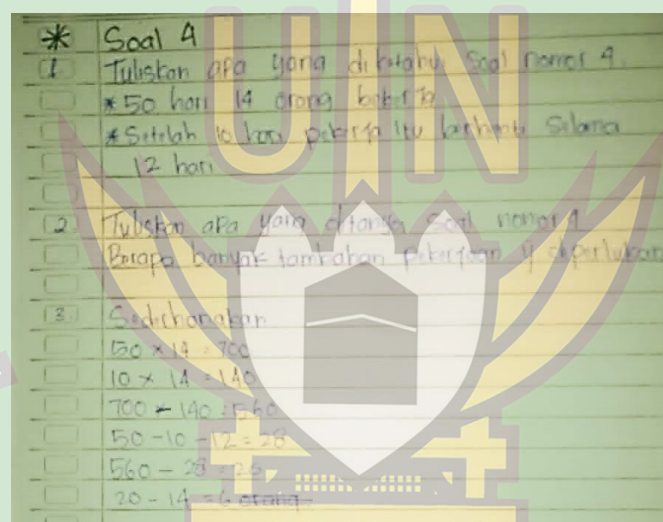 * Soal 4
1. Tuliskan apa yang diketahui soal nomor 4.
* 50 hari 14 orang bekerja
* Setelah 10 hari pekerja itu berhenti selama
12 hari
2. Tuliskan apa yang ditanya soal nomor 4
Berapa banyak tambahan pekerjaan y diperlukan
3. Sederhanakan
50 x 14 = 700
10 x 14 = 140
700 - 140 = 560
50 - 10 - 12 = 28
560 - 28 =
20 - 14 = 6 orang
UIN